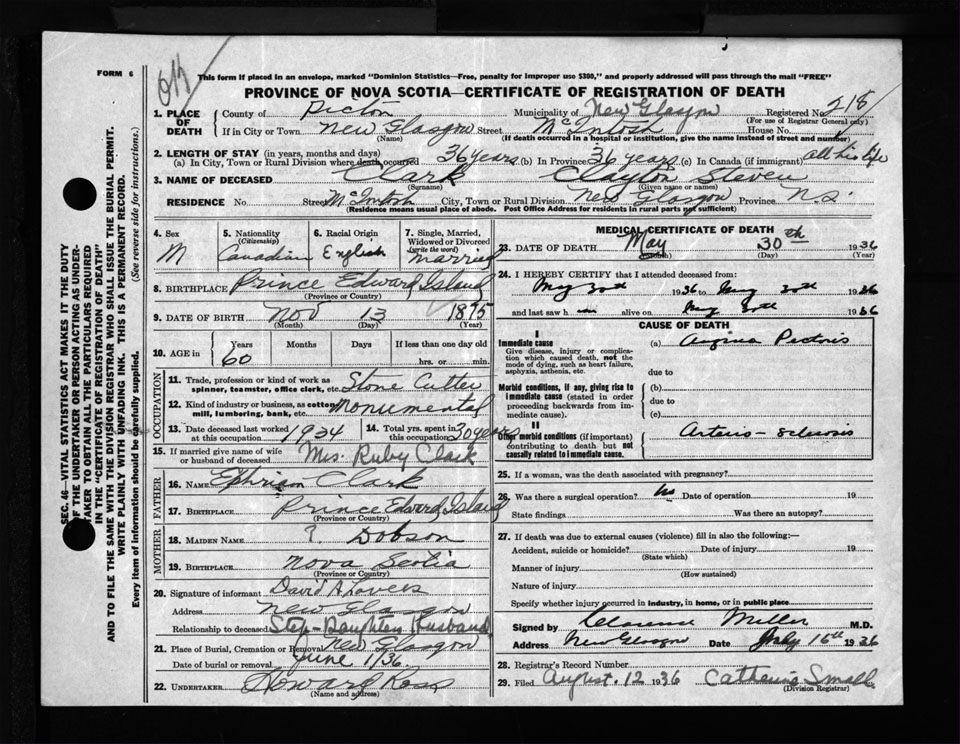 FORM 6
This form if placed in an envelope, marked "Dominion Statistics—Free, penalty for improper use $300," and properly addressed will pass through the mail "FREE"
PROVINCE OF NOVA SCOTIA—CERTIFICATE OF REGISTRATION OF DEATH
1. PLACE OF DEATH County of Pictou Municipality of New Glasgow Registered No. 218
(For use of Registrar General only)
If in City or Town New Glasgow Street McIntosh House No.
(Name) (If death occurred in a hospital or institution, give the name instead of street and number)
2. LENGTH OF STAY (in years, months and days)
(a) In City, Town or Rural Division where death occurred 36 years (b) In Province 36 years (c) In Canada (if immigrant) all his life
3. NAME OF DECEASED Clark Clayton Steven
(Surname) (Given name or names)
RESIDENCE No. Street McIntosh City, Town or Rural Division New Glasgow Province N.S.
(Residence means usual place of abode. Post Office Address for residents in rural parts not sufficient)
4. Sex M
5. Nationality (Citizenship) Canadian
6. Racial Origin English
7. Single, Married, Widowed or Divorced (write the word) married
8. BIRTHPLACE Prince Edward Island
(Province or Country)
9. DATE OF BIRTH Nov 13 1875
(Month) (Day) (Year)
10. AGE in Years Months Days If less than one day old
60 hrs. or min.
OCCUPATION
11. Trade, profession or kind of work as spinner, teamster, office clerk, etc. Stone Cutter
12. Kind of industry or business, as cotton mill, lumbering, bank, etc. Monumental
13. Date deceased last worked at this occupation 1934
14. Total yrs. spent in this occupation 30 years
15. If married give name of wife or husband of deceased Mrs. Ruby Clark
FATHER
16. NAME Ephriam Clark
17. BIRTHPLACE Prince Edward Island
(Province or Country)
MOTHER
18. MAIDEN NAME ? Dobson
19. BIRTHPLACE Nova Scotia
(Province or Country)
20. Signature of informant David A
Address New Glasgow
Relationship to deceased Step-Daughters Husband
21. Place of Burial, Cremation or Removal New Glasgow
Date of burial or removal June 1/36.
22. UNDERTAKER Howard Ross
(Name and address)
MEDICAL CERTIFICATE OF DEATH
23. DATE OF DEATH May 30th 1936
(Month) (Day) (Year)
24. I HEREBY CERTIFY that I attended deceased from:
May 30th 1936 to May 30th 1936
and last saw h im alive on May 30th 1936
CAUSE OF DEATH
I
Immediate cause (a) Angina Pectoris
Give disease, injury or complication which caused death, not the mode of dying, such as heart failure, asphyxia, asthenia, etc.
due to
Morbid conditions, if any, giving rise to immediate cause (stated in order proceeding backwards from immediate cause). (b)
due to
(c)
II
Other morbid conditions (if important) contributing to death but not causally related to immediate cause. Arterio-sclerosis
25. If a woman, was the death associated with pregnancy?
26. Was there a surgical operation? No Date of operation 19
State findings Was there an autopsy?
27. If death was due to external causes (violence) fill in also the following:—
Accident, suicide or homicide? Date of injury 19
(State which)
Manner of injury
(How sustained)
Nature of injury
Specify whether injury occurred in industry, in home, or in public place
Signed by Clarence Miller M.D.
Address New Glasgow July 16th 1936
28. Registrar's Record Number
29. Filed August 12 1936 Catherine Small
(Division Registrar)
SEC. 46—VITAL STATISTICS ACT MAKES IT THE DUTY
OF THE UNDERTAKER OR PERSON ACTING AS UNDER-
TAKER TO OBTAIN ALL THE PARTICULARS REQUIRED
IN THE "CERTIFICATE OF REGISTRATION OF DEATH"
AND TO FILE THE SAME WITH THE DIVISION REGISTRAR WHO SHALL ISSUE THE BURIAL PERMIT.
WRITE PLAINLY WITH UNFADING INK. THIS IS A PERMANENT RECORD.
Every item of information should be carefully supplied. (See reverse side for instructions.)